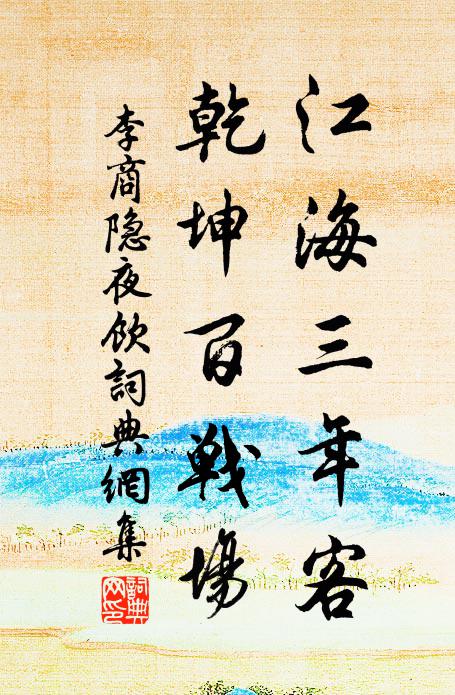 江海三年客
乾坤百戰場
李商隐夜飲詞典網集
詞典網印